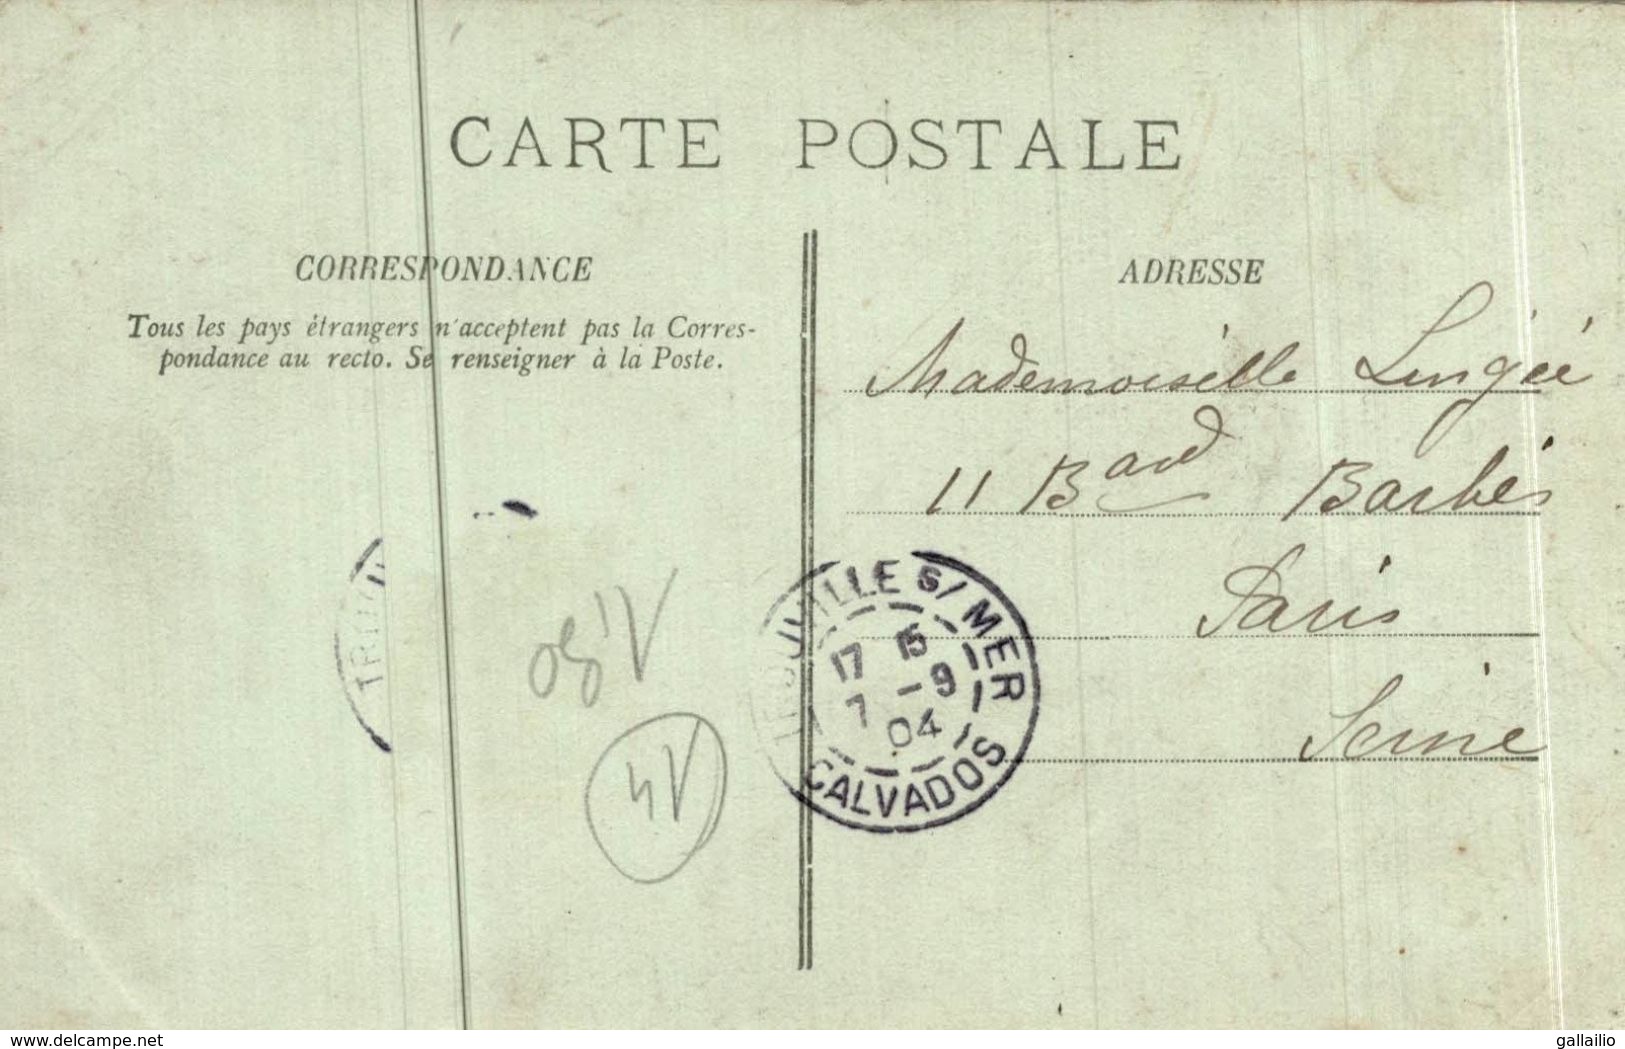 CARTE POSTALE
CORRESPONDANCE
Tous les pays étrangers n'acceptent pas la Corres-
pondance au recto. Se renseigner à la Poste.
ADRESSE
Mademoiselle
11 Bard Barbès
Paris
Seine
TROUVILLE S/ MER
17 15
7 -9
04
CALVADOS
TROU
www.delcampe.net
gallailio